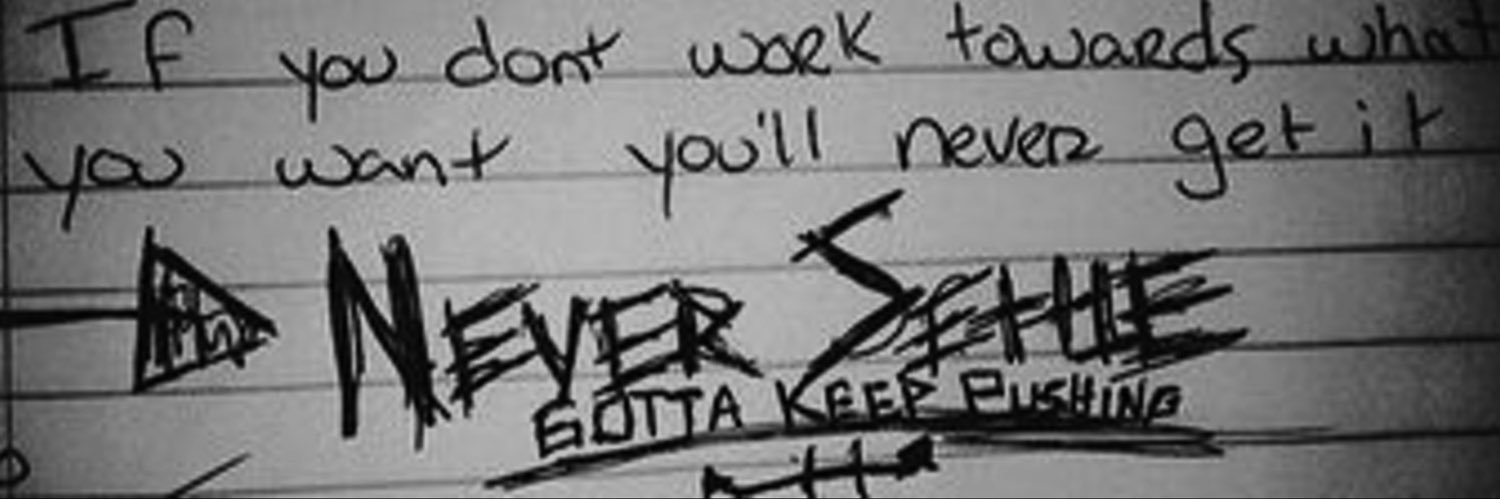 If you dont work towards what
you want you'll never get it
NEVER SETTLE
GOTTA KEEP PUSHING